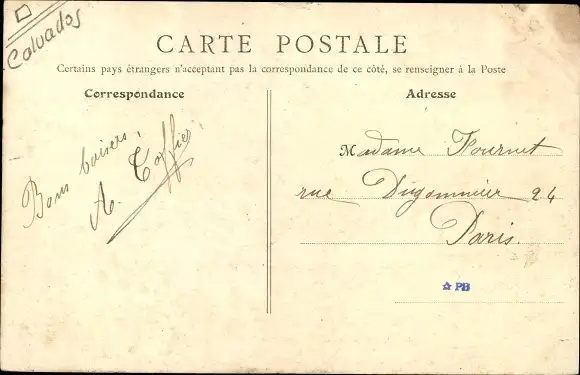 Calvados
CARTE POSTALE
Certains pays étrangers n'acceptant pas la correspondance de ce côté, se renseigner à la Poste
Correspondance
Bons baisers,
A. Toffier
Adresse
Madame Fournet
rue Dugommier 24
Paris.
☆ PB